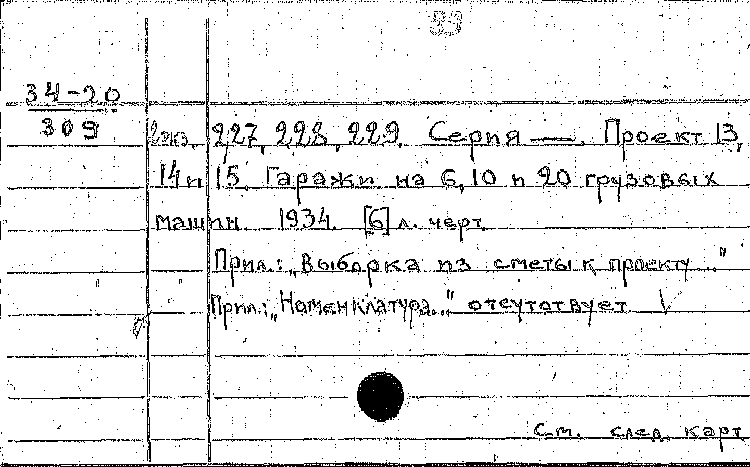 34-20
309
2экз. 227, 228, 229. Серия —. Проект 13,
14 и 15. Гаражи на 6, 10 и 20 грузовых
машин. 1934. [6] л. черт.
Прил.: „Выборка из сметы к проекту..."
Прил.: „Номенклатура..." отсутствует
См. след. карт.